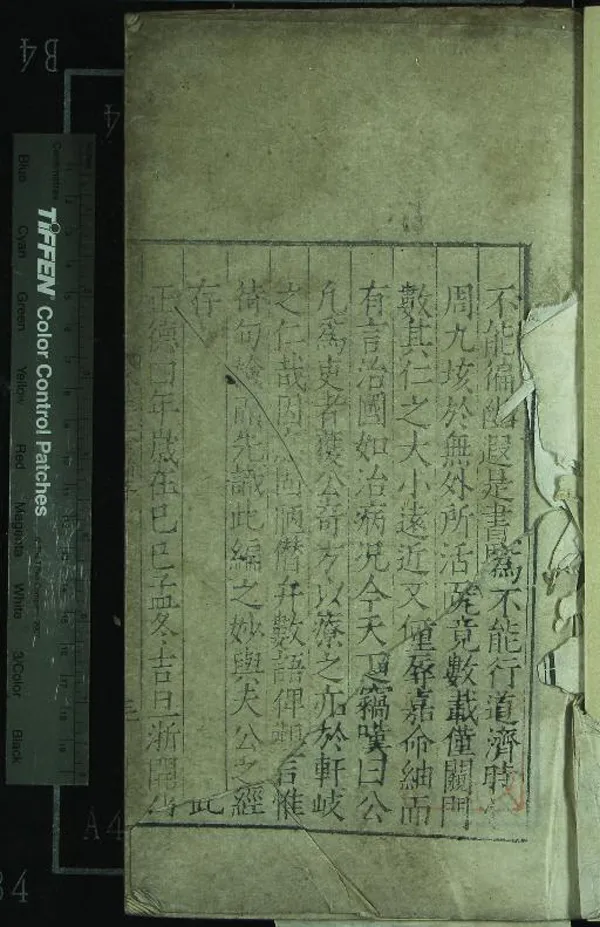 不能徧幽遐是書寫不能行道濟時
周九垓於無外所活竟數載僅關門
數其仁之大小遠近又僮辱嘉命紬而
有言治國如治病况今天竊嘆曰公
凡爲吏者獲公奇方以療之亦於軒岐
之仁哉因固陋僭弁數語俾言惟
徛句先識此編之妙與夫公之經
存此
正德四年歲在己巳孟冬吉旦浙開
TIFFEN Color Control Patches
Blue Cyan Green Yellow Red Magenta White 3/Color Black
Centimetres
B4
A4